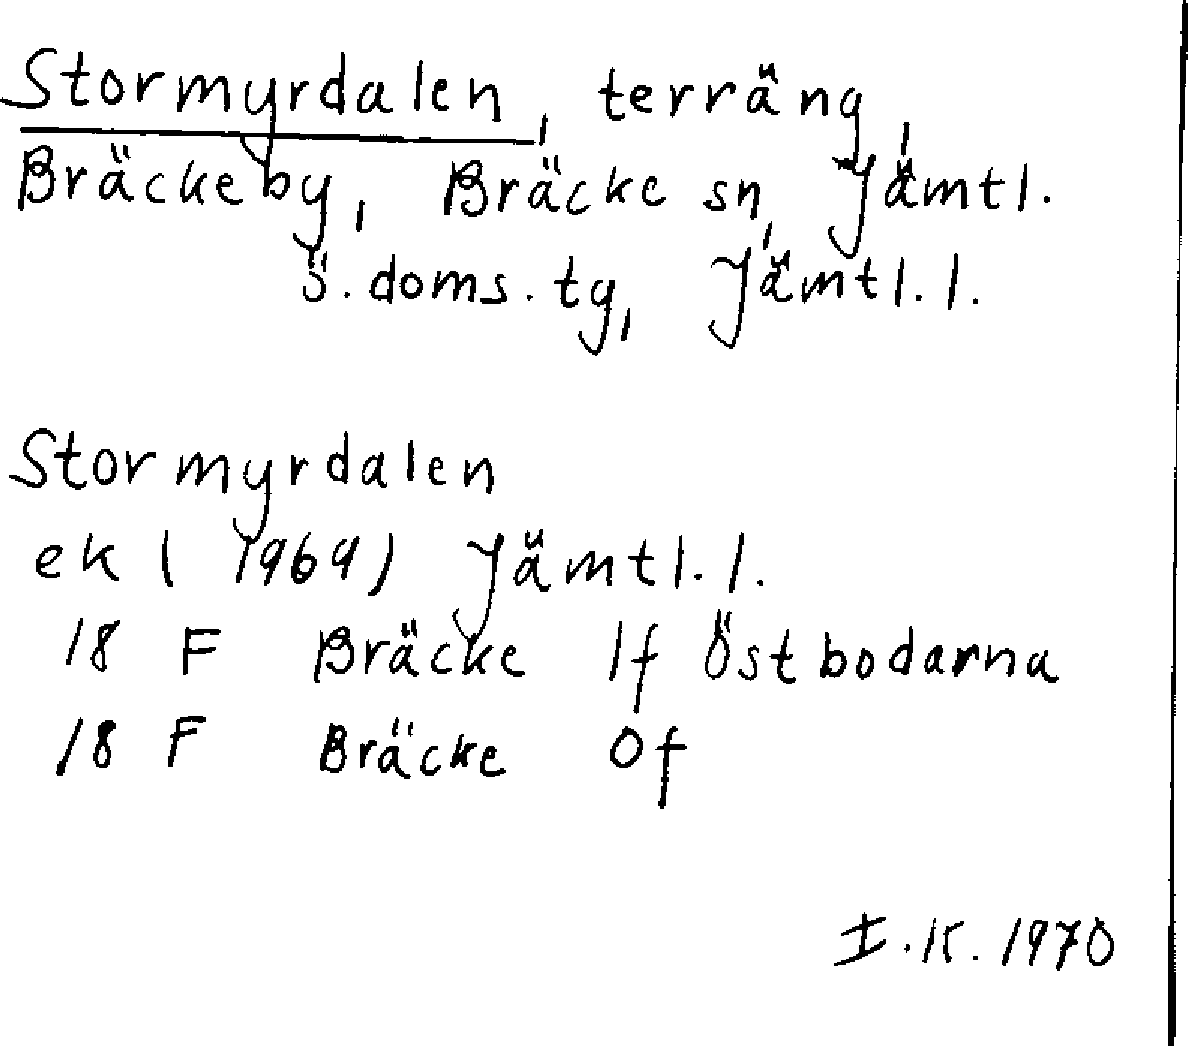 Stormyrdalen, terräng,
Bräcke by, Bräcke sn, Jämtl.
s. doms. tg, Jämtl. l.
Stormyrdalen
ek (1969) Jämtl. l.
18 F Bräcke If Östbodarna
18 F Bräcke Of
I. K. 1970